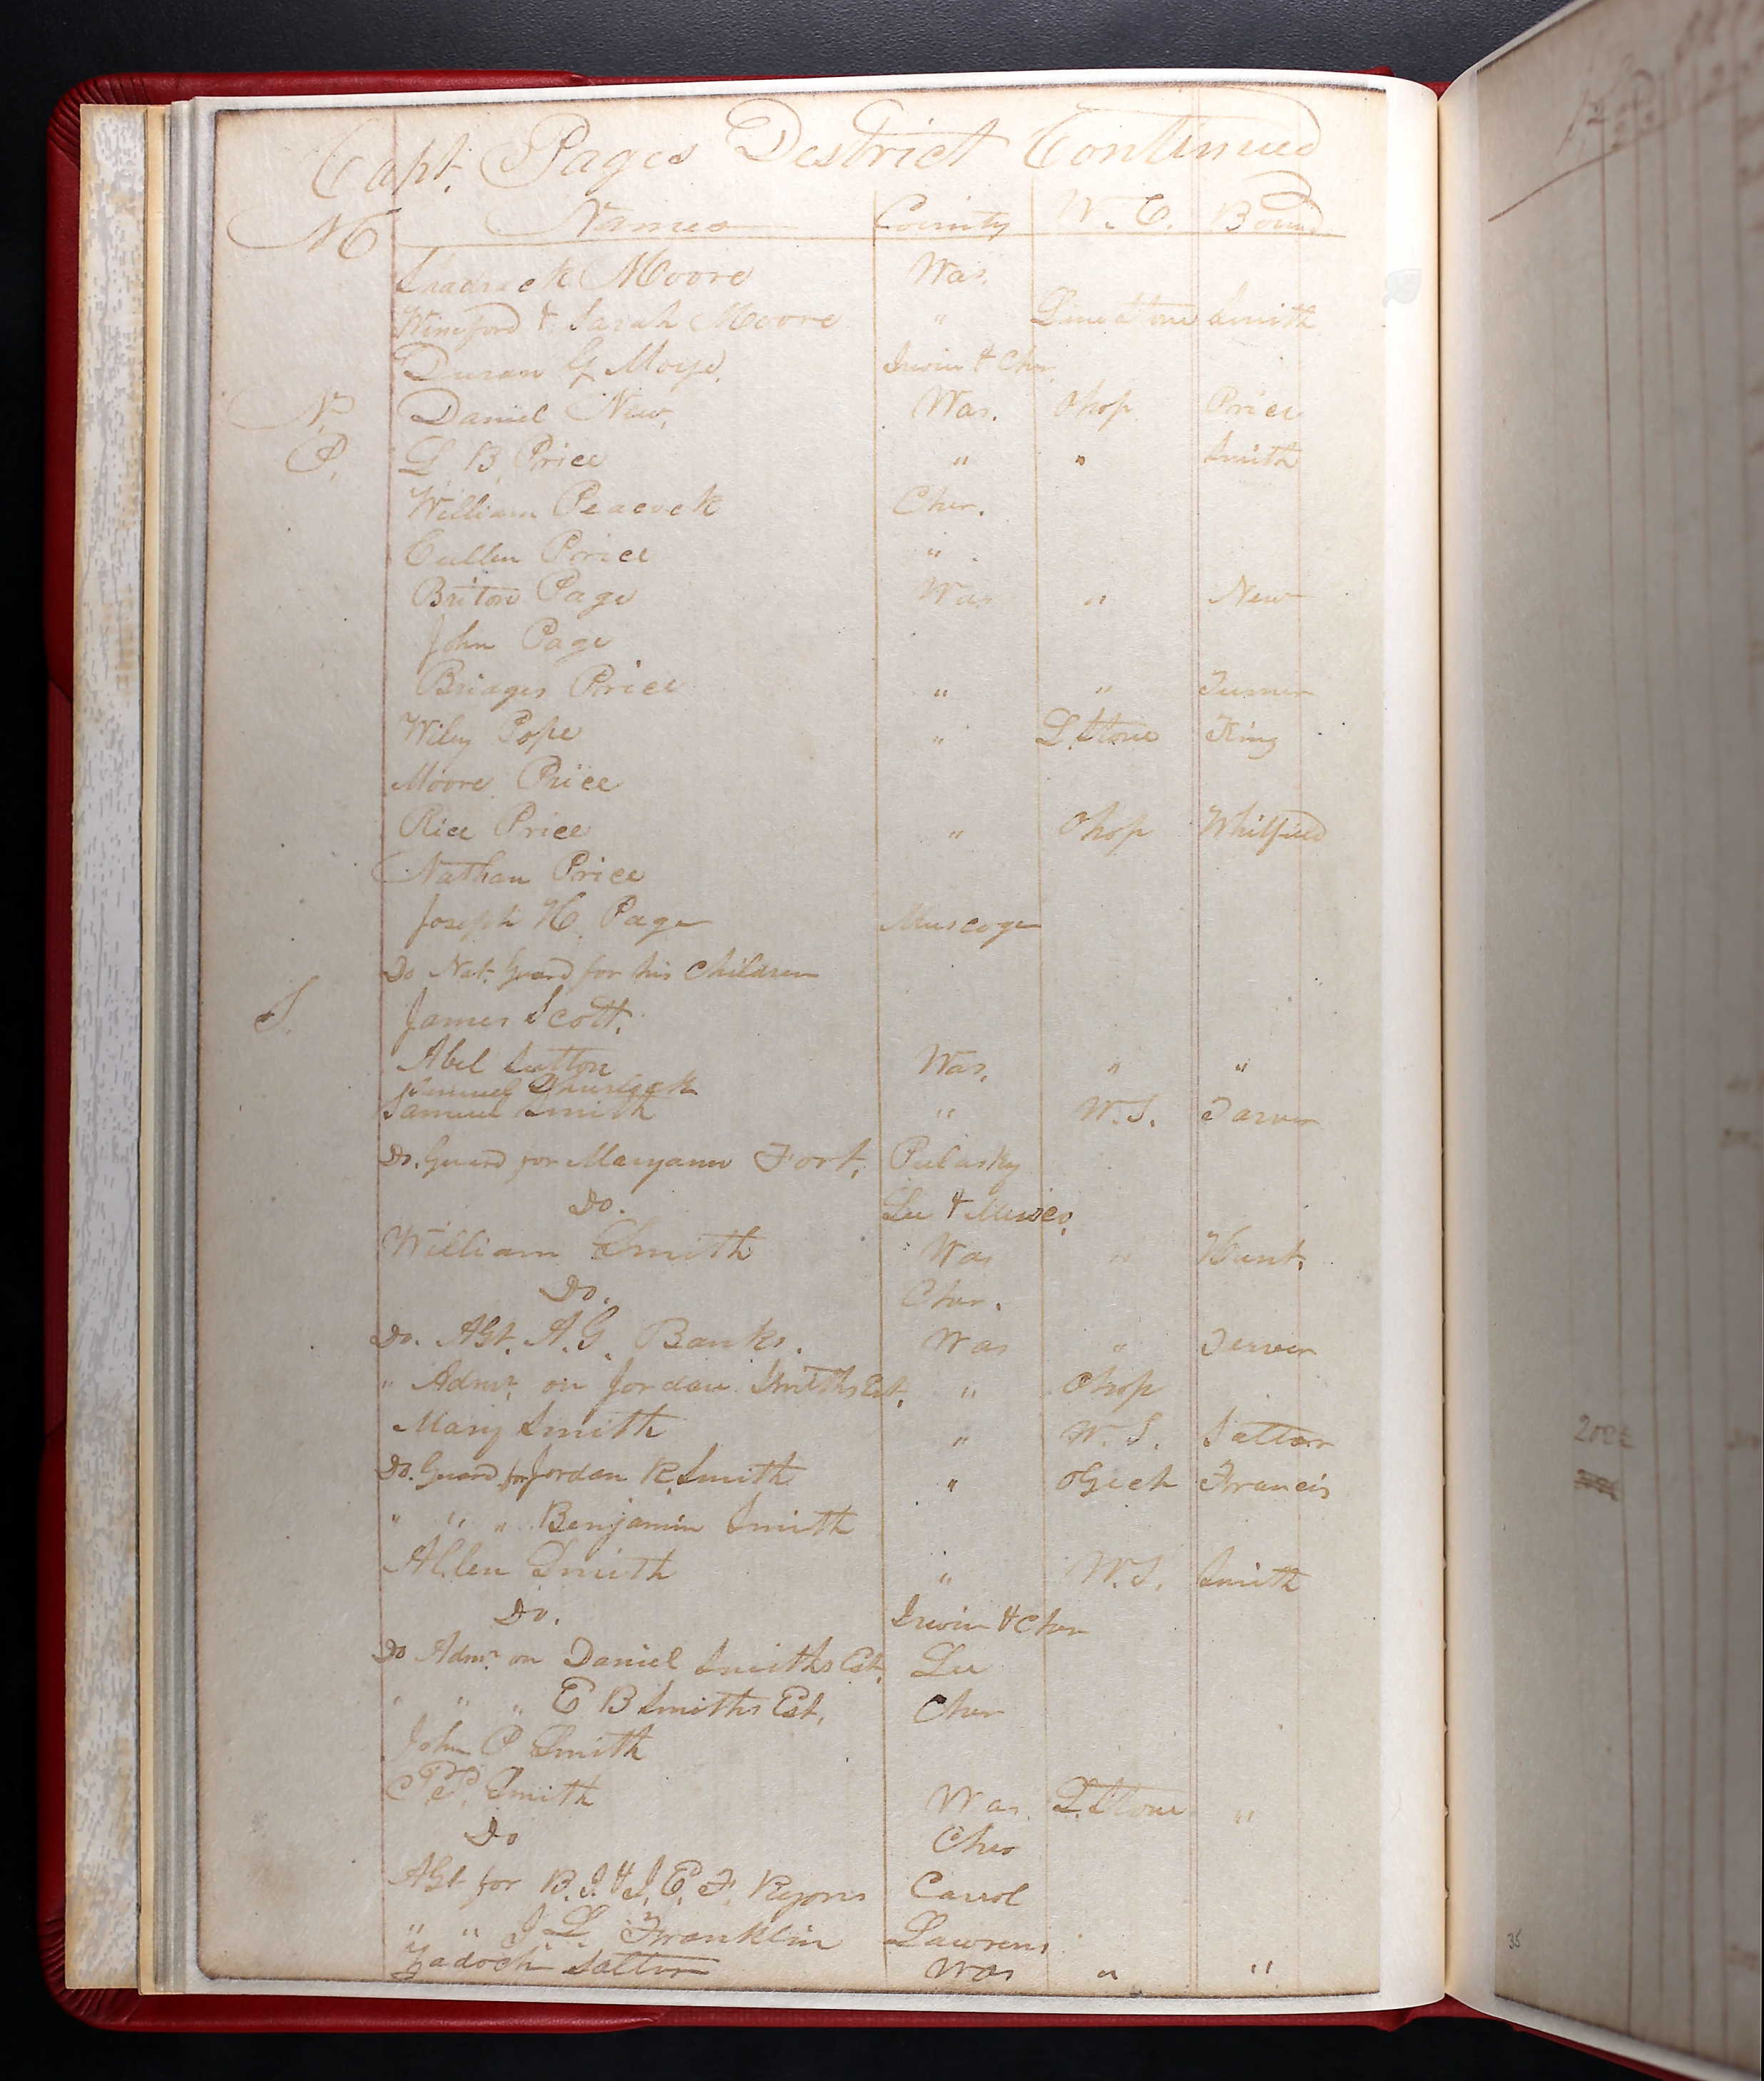 Capt. Pages District Continued
M Names County W. C. Bound
Shadrack Moore Was.
Kineford & Sarah Moore " Lime Stone Smith
Duran G Moye. Irwin & Cher
N. Daniel New, Was. Ohop Price
P. L B Price " " Smith
William Peacock Cher.
Cullen Price "
Briton Page Was " New
John Page
Bridges Price " " Turner
Wiley Pope " L. Stone King
Moore Price
Rice Price " Ohop Whitfield
Nathan Price
Joseph H. Page Muscoge
Do Nat. Guard for his Children
S. James Scott.
Abel Sutton Was, " "
Samuel
Samuel Smith " W. S. Tarver
Do. Guard for Maryann Fort, Pulasky
Do. Lee & Musco,
William Smith Was " Hunt,
Do. Cher.
Do. Agt. A. G. Banks. Was " Terver
" Admr. on Jordan Smiths Est, " Ohop
Mary Smith " W. S. Satter
Do. Guard for Jordan R Smith " Ogech Francis
" " " Benjamin Smith
Allen Smith " W. S. Smith
Do. Irwin & Cher
Do Admr. on Daniel Smiths Est, Lee
" " " E B Smiths Est, Cher
John P Smith
Smith Was. L. Stone "
Do Cher
Agt for B. J. & J, E, F, Ryons Carrol
" " J L. Franklin Lawrens
Zadoch Satter Was " "
35